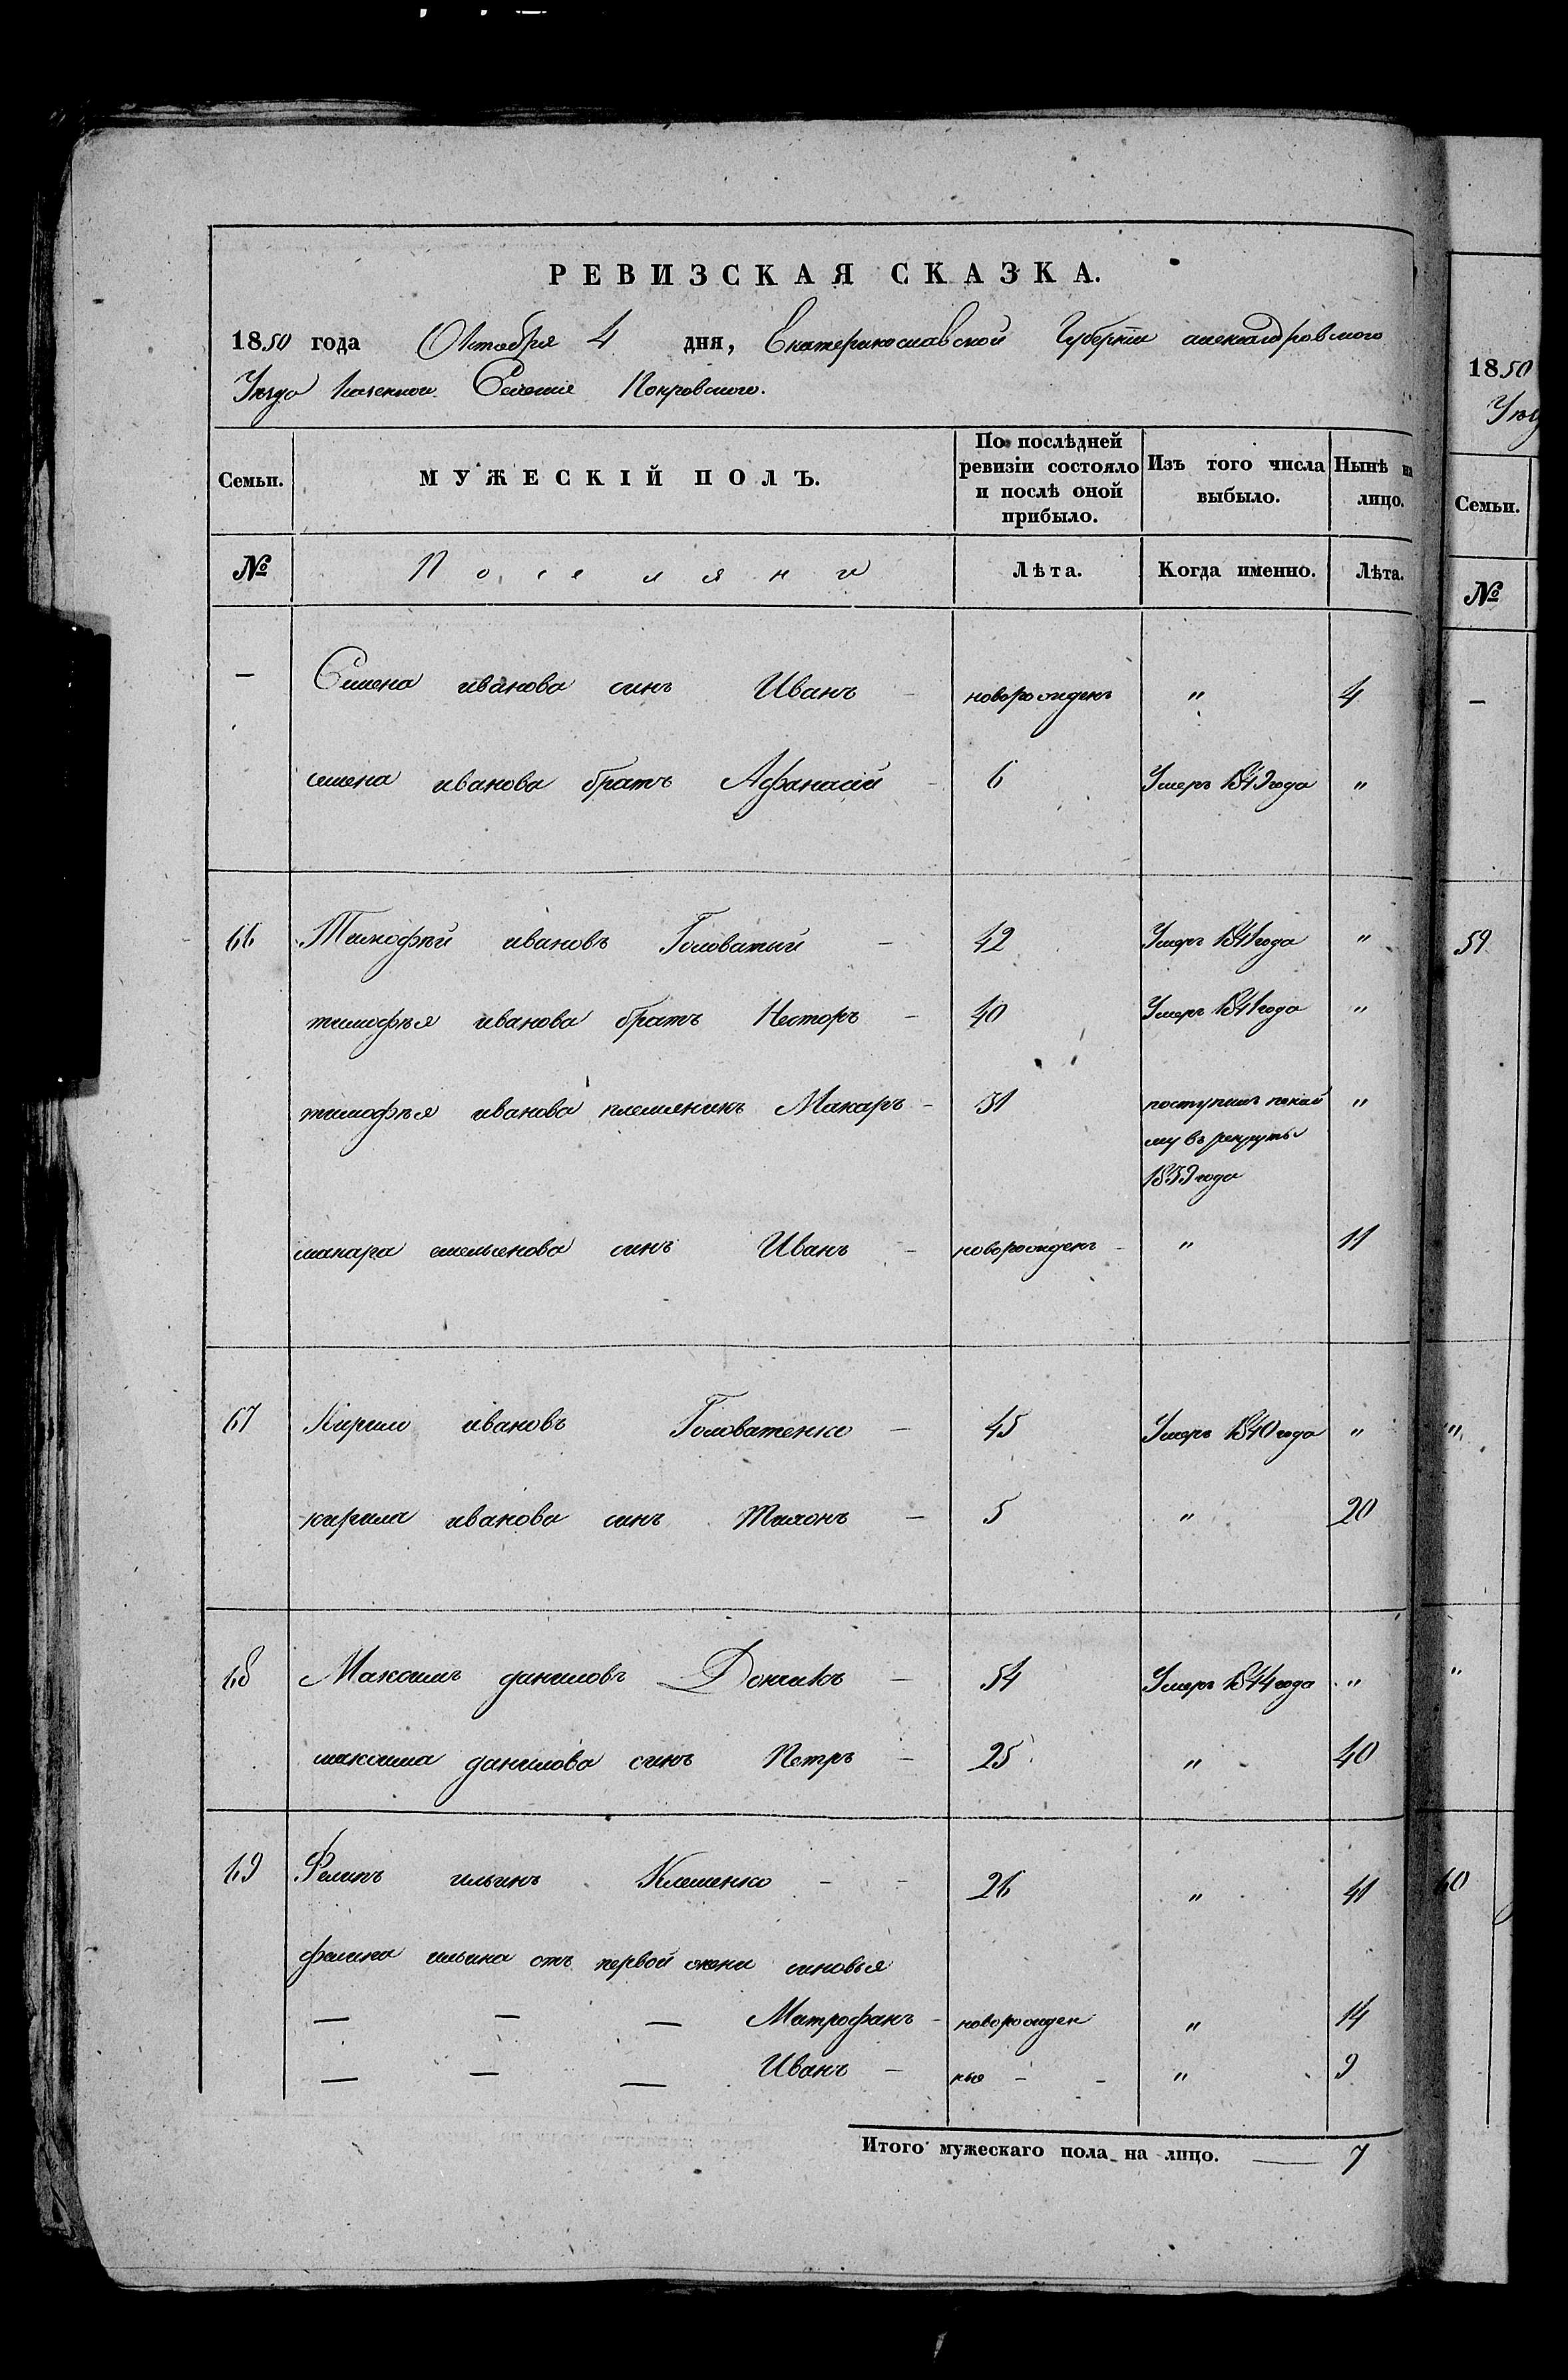 РЕВИЗСКАЯ СКАЗКА.
1850 года Октября 4 дня, Екатеринославской Губерніи александровского
Уезда Казенного Селения Покровского.
Семьи. МУЖЕСКІЙ ПОЛЪ. По послѣдней ревизіи состояло и послѣ оной прибыло. Изъ того числа выбыло. Нынѣ на лицо.
№ Поселяни Лѣта. Когда именно. Лѣта.
— Семена иванова синъ Иванъ – новорожденъ „ 4
семена иванова братъ Афанасій – 6 Умеръ 1849 года „
66 Тимофѣй ивановъ Головатый – 42 Умеръ 1841 года „
тимофѣя иванова братъ Несторъ – 40 Умеръ 1841 года „
тимофѣя иванова племяникъ Макаръ – 31 поступилъ по най „
му въ рекруты
1839 года
макара емельенова синъ Иванъ – новорожденъ – „ 11
67 Кирило ивановъ Головатенко – 45 Умеръ 1840 года „
кирила иванова синъ Тихонъ – 5 „ 20
68 Максимъ даниловъ Дончикъ – 54 Умеръ 1844 года „
максима данилова синъ Петръ – 25 „ 40
69 Филипъ ильинъ Клименко – – 26 „ 41
филипа ильина отъ первой жени синовья
— — — Митрофанъ – новорожден „ 14
— — — Иванъ – ные – – „ 9
Итого мужескаго пола на лицо. — 7
1850
Уез
Семьи.
№
–
59
„
„
60